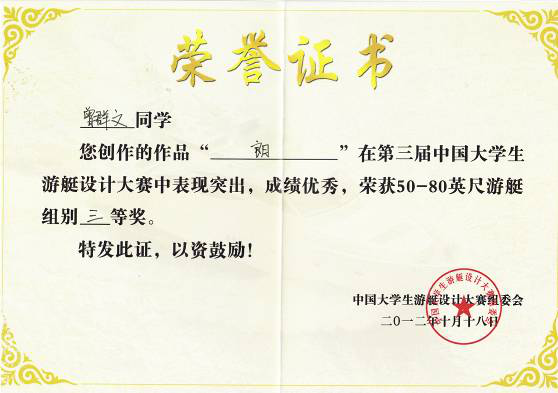 荣誉证书
曾群文同学
您创作的作品“朗”在第三届中国大学生
游艇设计大赛中表现突出，成绩优秀，荣获50-80英尺游艇
组别三等奖。
特发此证，以资鼓励！
中国大学生游艇设计大赛组委会
二〇一二年十月十八日